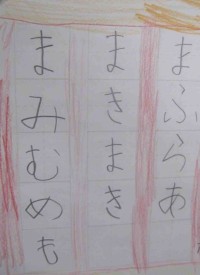 まふらあ
まきまき
まみむめも